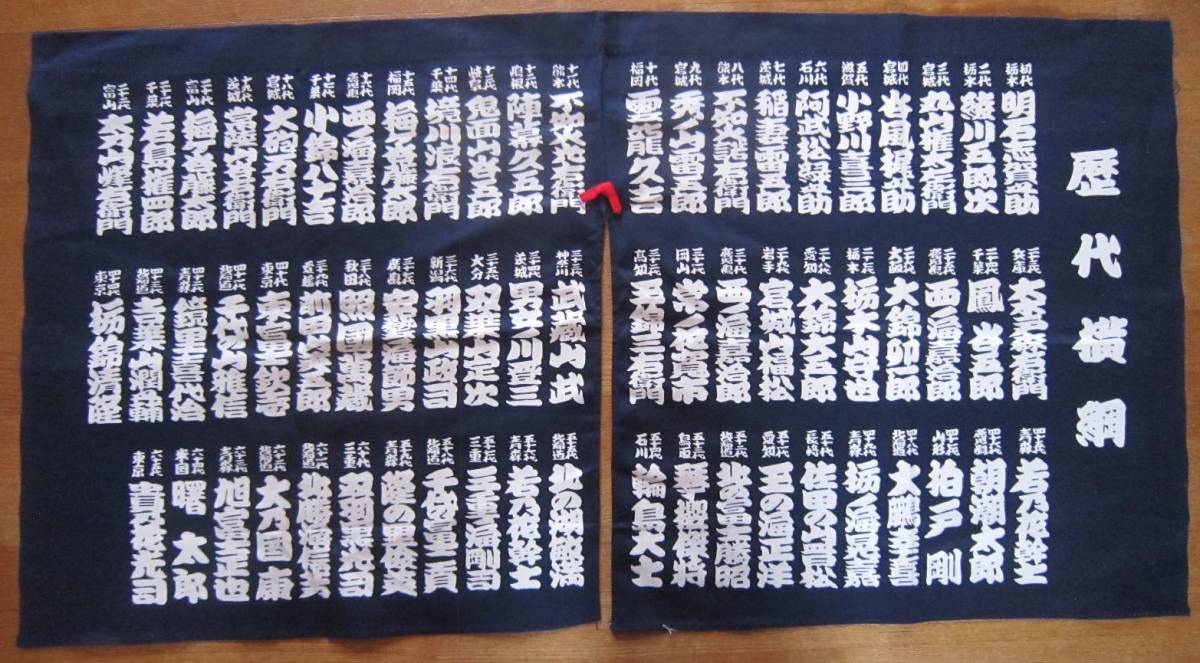 歴代横綱
初代 栃木 明石志賀之助
二代 栃木 綾川五郎次
三代 宮城 丸山権太左衛門
四代 宮城 谷風梶之助
五代 滋賀 小野川喜三郎
六代 石川 阿武松緑之助
七代 茨城 稲妻雷五郎
八代 熊本 不知火諾右衛門
九代 宮城 秀ノ山雷五郎
十代 福岡 雲龍久吉
十一代 熊本 不知火光右衛門
十二代 島根 陣幕久五郎
十三代 岐阜 鬼面山谷五郎
十四代 千葉 境川浪右衛門
十五代 福岡 梅ヶ谷藤太郎
十六代 鹿児島 西ノ海嘉治郎
十七代 千葉 小錦八十吉
十八代 宮城 大砲万右衛門
十九代 茨城 常陸山谷右衛門
二十代 富山 梅ヶ谷藤太郎
二十一代 千葉 若島権四郎
二十二代 富山 太刀山峰右衛門
二十三代 兵庫 大木戸森右衛門
二十四代 千葉 鳳谷五郎
二十五代 鹿児島 西ノ海嘉治郎
二十六代 大阪 大錦卯一郎
二十七代 栃木 栃木山守也
二十八代 愛知 大錦大五郎
二十九代 岩手 宮城山福松
三十代 鹿児島 西ノ海嘉治郎
三十一代 岡山 常ノ花寛市
三十二代 高知 玉錦三右衛門
三十三代 神奈川 武蔵山武
三十四代 茨城 男女ノ川登三
三十五代 大分 双葉山定次
三十六代 新潟 羽黒山政司
三十七代 広島 安藝ノ海節男
三十八代 秋田 照國萬蔵
三十九代 愛媛 前田山英五郎
四十代 東京 東富士欽壹
四十一代 北海道 千代の山雅信
四十二代 青森 鏡里喜代治
四十三代 北海道 吉葉山潤之輔
四十四代 東京 栃錦清隆
四十五代 青森 若乃花幹士
四十六代 鹿児島 朝潮太郎
四十七代 山形 柏戸剛
四十八代 北海道 大鵬幸喜
四十九代 青森 栃ノ海晃嘉
五十代 長崎 佐田の山晋松
五十一代 愛知 玉の海正洋
五十二代 北海道 北の富士勝昭
五十三代 鳥取 琴櫻傑将
五十四代 石川 輪島大士
五十五代 北海道 北の湖敏満
五十六代 青森 若乃花幹士
五十七代 三重 三重ノ海剛司
五十八代 北海道 千代の富士貢
五十九代 青森 隆の里俊英
六十代 三重 双羽黒光司
六十一代 北海道 北勝海信芳
六十二代 北海道 大乃国康
六十三代 青森 旭富士正也
六十四代 米国 曙太郎
六十五代 東京 貴乃花光司